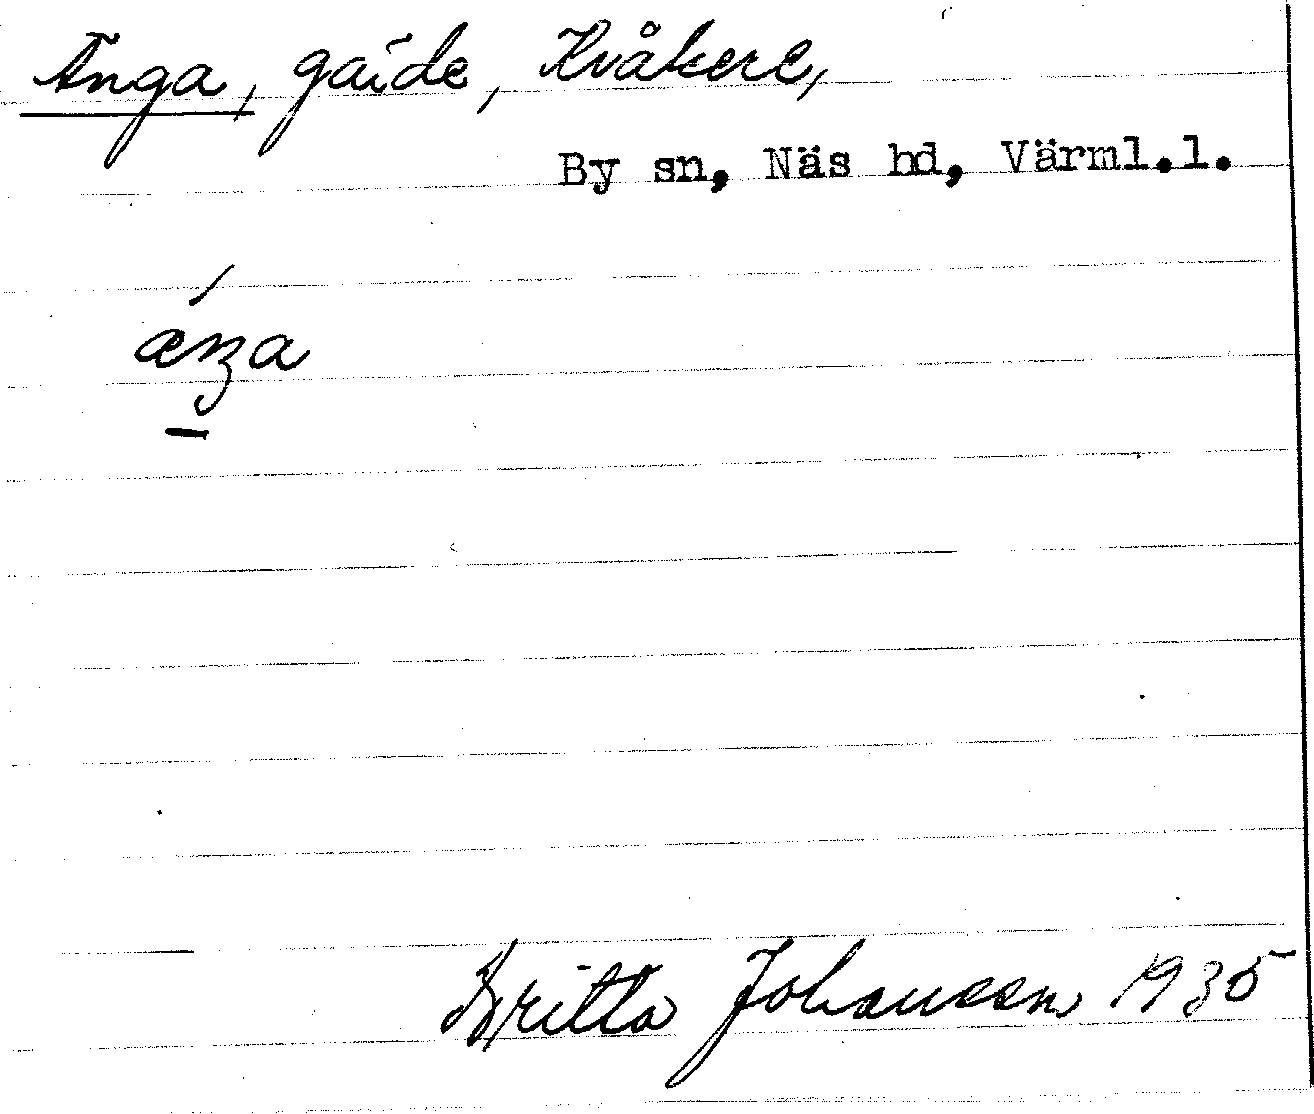 Änga, gärde, Kvåkere,
By sn, Näs hd, Värml.l.
Britta Johansson 1935